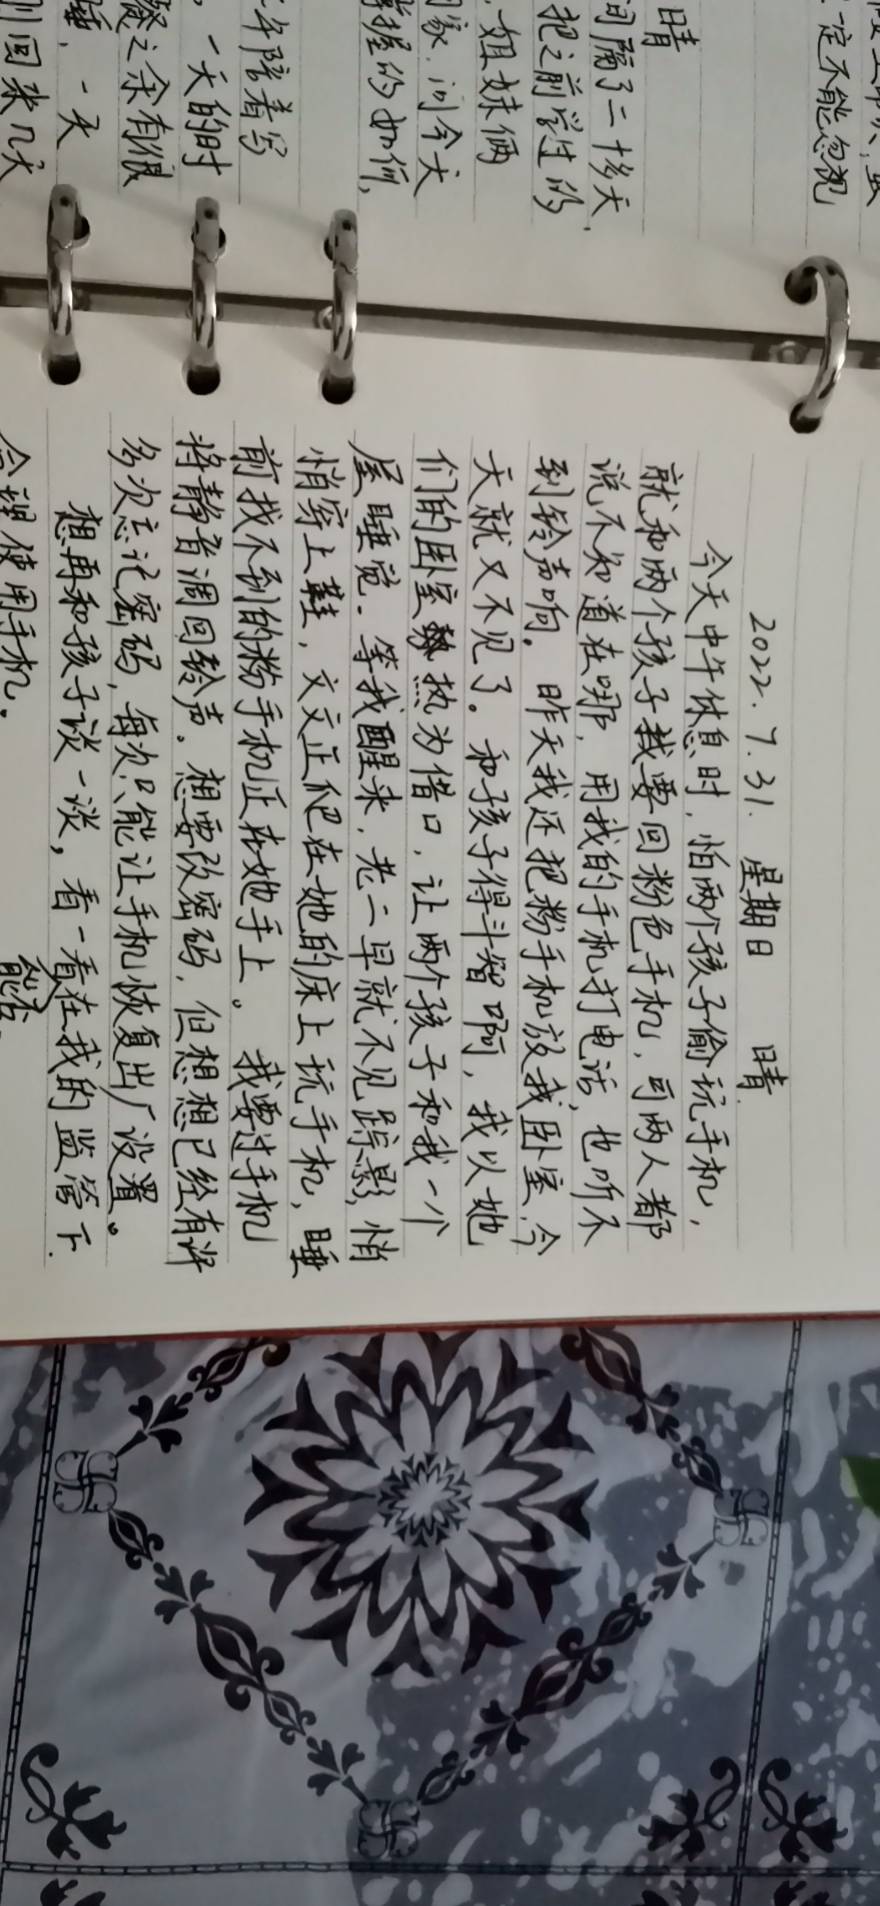 2022.7.31. 星期日 晴.
今天中午休息时,怕两个孩子偷玩手机,
就和两个孩子找要回粉色手机,可两人都
说不知道在哪,用我的手机打电话,也听不
到铃声响。昨天我还把粉手机放我卧室,今
天就又不见了。和孩子得斗智啊,我以她
们的卧室热为借口,让两个孩子和我一个
屋睡觉。等我醒来,老二早就不见踪影,悄
悄穿上鞋,文文正爬在她的床上玩手机,睡
前找不到的粉手机正在她手上。我要过手机
将静音调回铃声。想要改密码,但想想已经有许
多次忘记密码,每次只能让手机恢复出厂设置。
想再和孩子谈一谈,看一看在我的监管下.
能否
合理使用手机.
一定不能忽视
晴
间隔了二十多天,
把之前学过的
姐妹俩
家,问今天
掌握的如何,
年陪着写
。一天的时
之余有很
睡,一天
回来几天